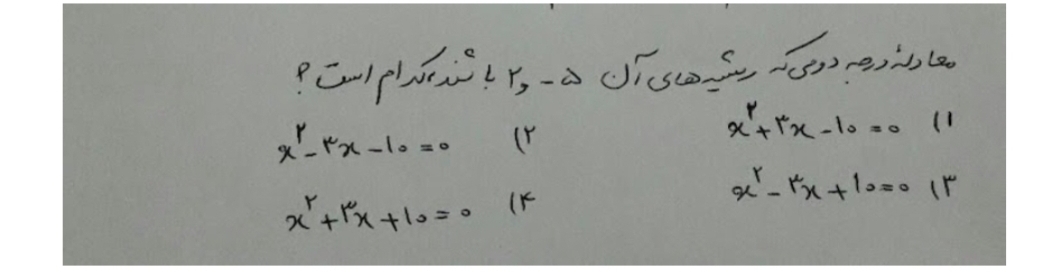 معادلهٔ درجه دومی که ریشه‌های آن ۵- و ۲ باشند، کدام است؟
۱) x²+۳x-۱۰=۰ ۲) x²-۳x-۱۰=۰
۳) x²-۳x+۱۰=۰ ۴) x²+۳x+۱۰=۰